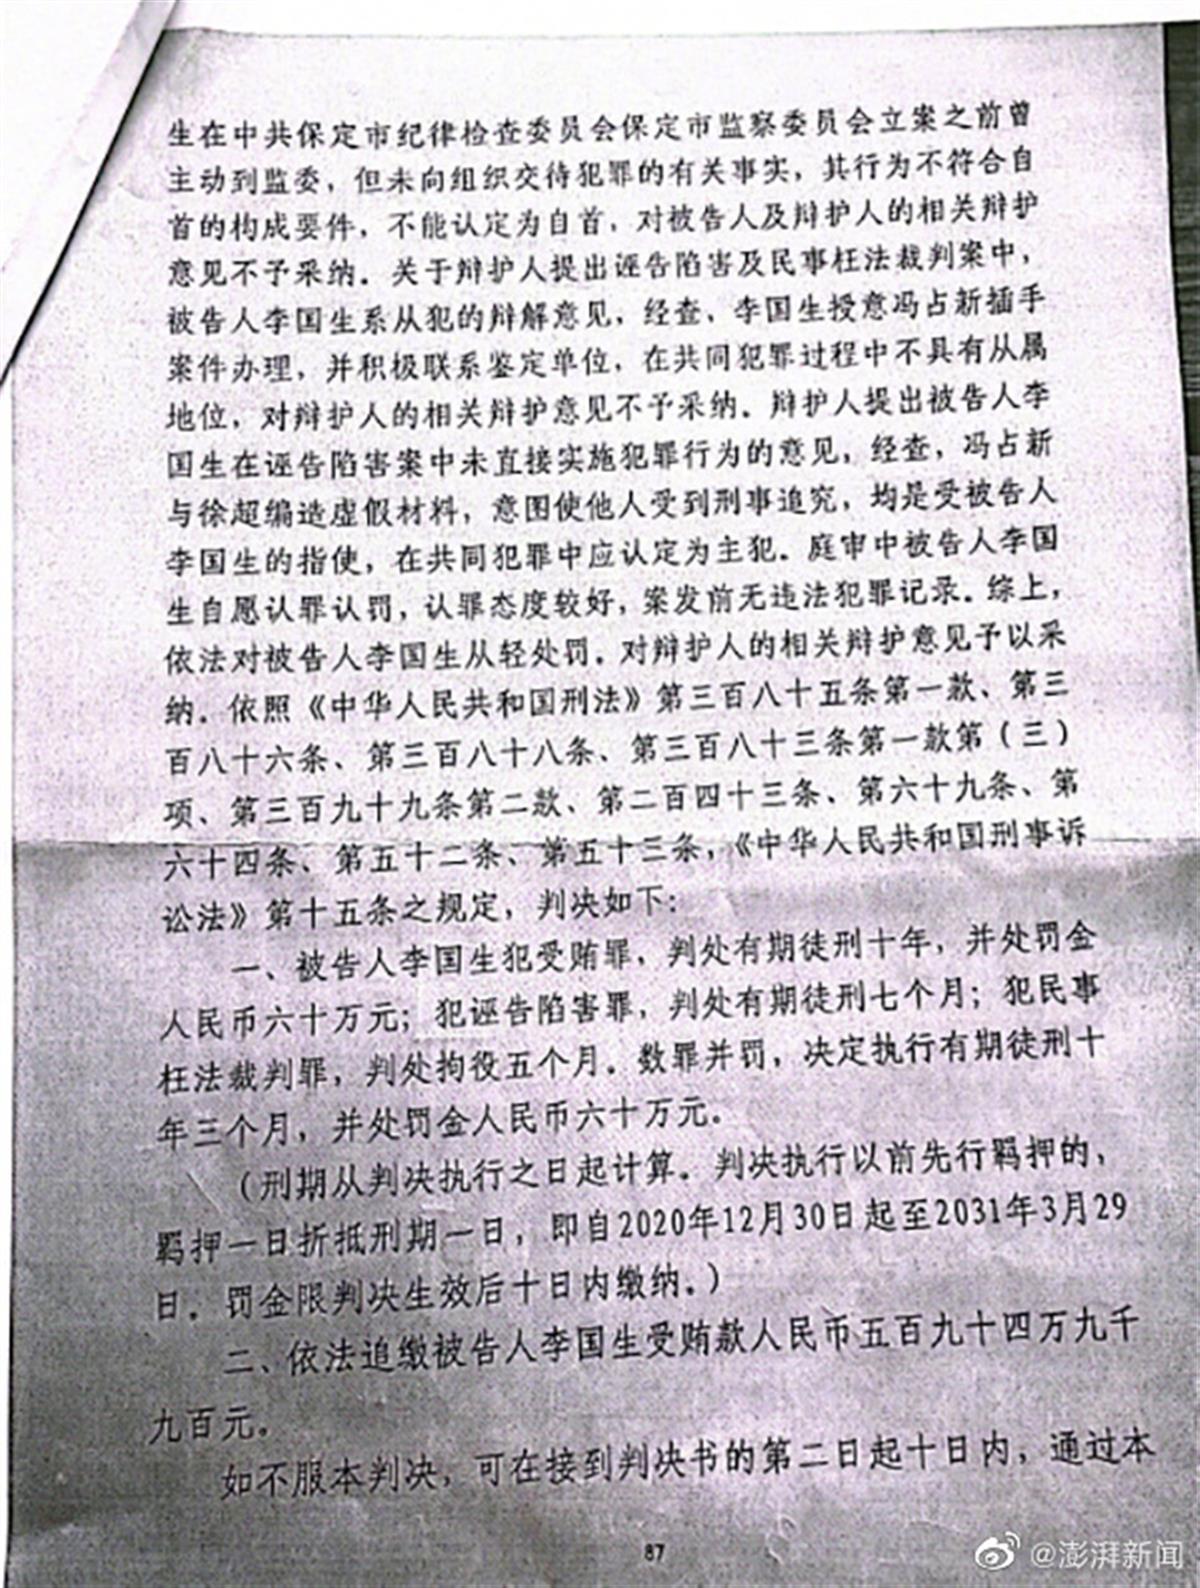 生在中共保定市纪律检查委员会保定市监察委员会立案之前曾
主动到监委，但未向组织交待犯罪的有关事实，其行为不符合自
首的构成要件，不能认定为自首，对被告人及辩护人的相关辩护
意见不予采纳。关于辩护人提出诬告陷害及民事枉法裁判案中，
被告人李国生系从犯的辩解意见，经查，李国生授意冯占新插手
案件办理，并积极联系鉴定单位，在共同犯罪过程中不具有从属
地位，对辩护人的相关辩护意见不予采纳。辩护人提出被告人李
国生在诬告陷害案中未直接实施犯罪行为的意见，经查，冯占新
与徐超编造虚假材料，意图使他人受到刑事追究，均是受被告人
李国生的指使，在共同犯罪中应认定为主犯。庭审中被告人李国
生自愿认罪认罚，认罪态度较好，案发前无违法犯罪记录。综上，
依法对被告人李国生从轻处罚。对辩护人的相关辩护意见予以采
纳。依照《中华人民共和国刑法》第三百八十五条第一款、第三
百八十六条、第三百八十八条、第三百八十三条第一款第（三）
项、第三百九十九条第二款、第二百四十三条、第六十九条、第
六十四条、第五十二条、第五十三条，《中华人民共和国刑事诉
讼法》第十五条之规定，判决如下：
一、被告人李国生犯受贿罪，判处有期徒刑十年，并处罚金
人民币六十万元；犯诬告陷害罪，判处有期徒刑七个月；犯民事
枉法裁判罪，判处拘役五个月。数罪并罚，决定执行有期徒刑十
年三个月，并处罚金人民币六十万元。
（刑期从判决执行之日起计算。判决执行以前先行羁押的，
羁押一日折抵刑期一日，即自2020年12月30日起至2031年3月29
日。罚金限判决生效后十日内缴纳。）
二、依法追缴被告人李国生受贿款人民币五百九十四万九千
九百元。
如不服本判决，可在接到判决书的第二日起十日内，通过本
87
@澎湃新闻